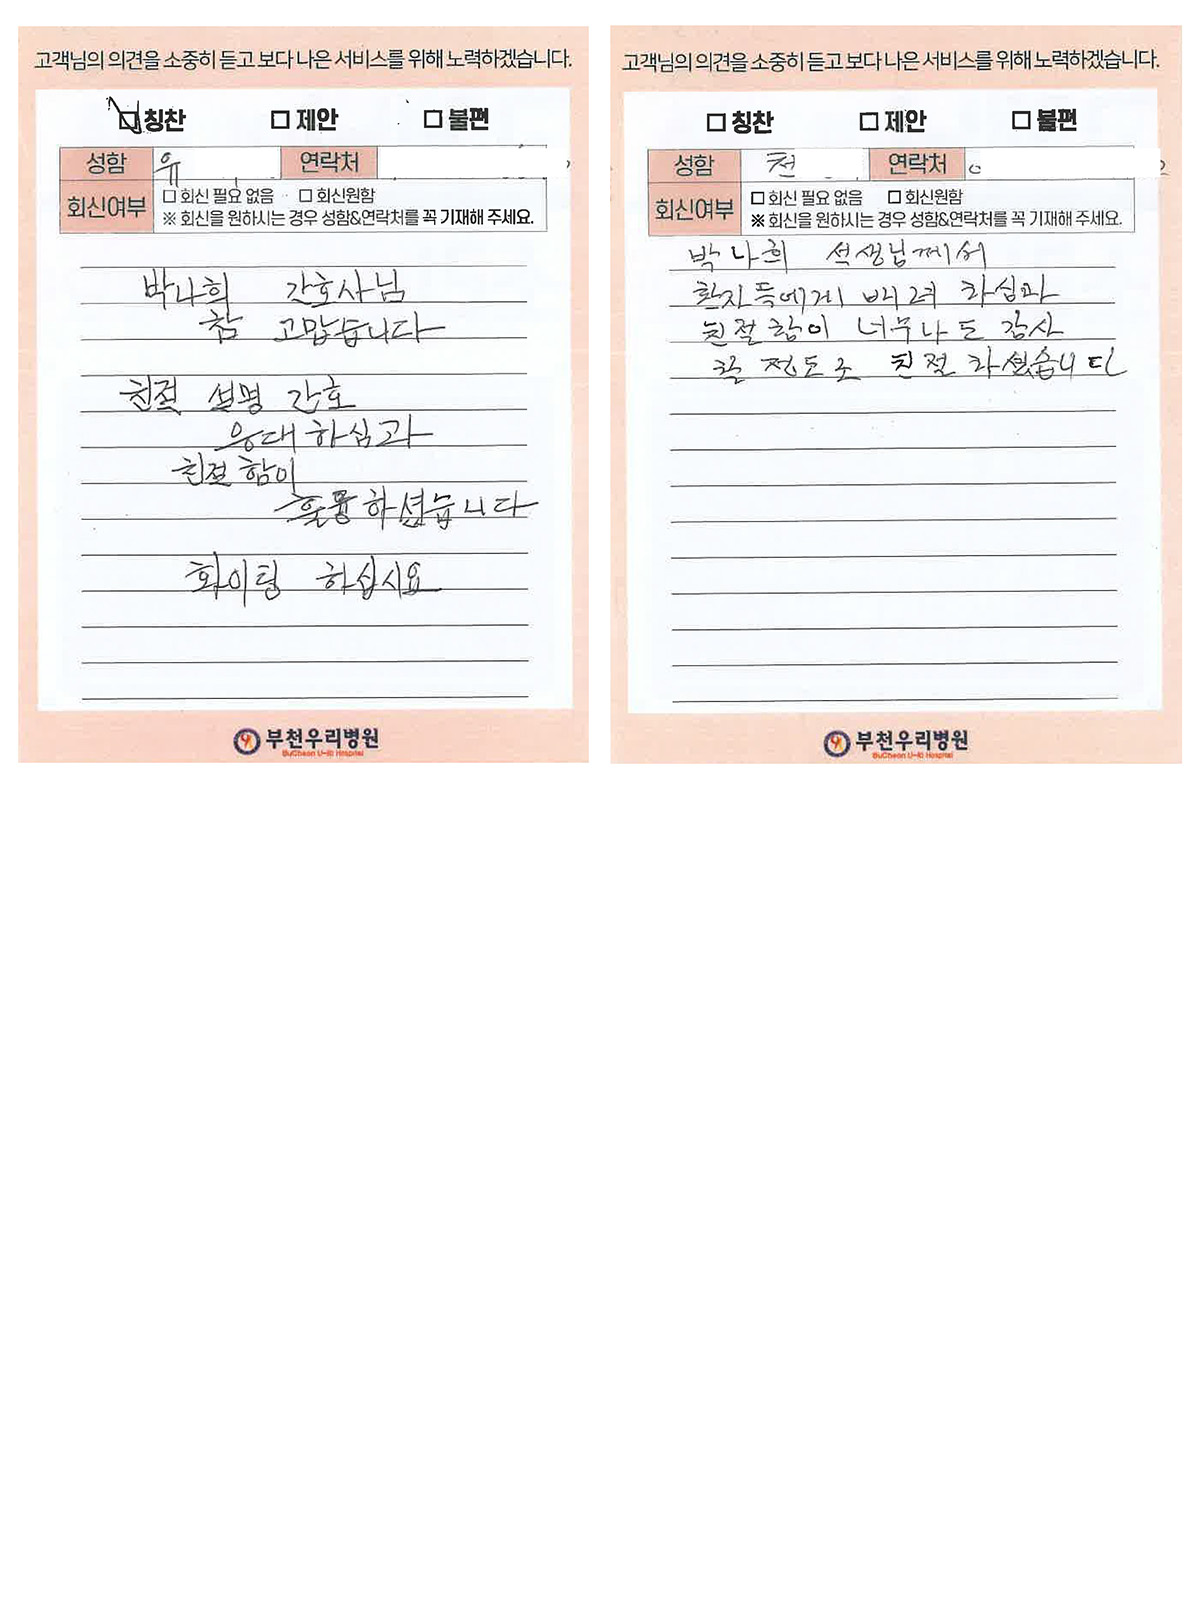 고객님의 의견을 소중히 듣고 보다 나은 서비스를 위해 노력하겠습니다.
칭찬 제안 불편
성함 유 연락처
회신여부 회신 필요 없음 회신원함
※ 회신을 원하시는 경우 성함&연락처를 꼭 기재해 주세요.
박나희 간호사님
참 고맙습니다
친절 설명 간호
응대하심과
친절함이
훌륭하셨습니다
화이팅 하십시요
부천우리병원
BuCheon U-Ri Hospital
고객님의 의견을 소중히 듣고 보다 나은 서비스를 위해 노력하겠습니다.
칭찬 제안 불편
성함 천 연락처
회신여부 회신 필요 없음 회신원함
※ 회신을 원하시는 경우 성함&연락처를 꼭 기재해 주세요.
박나희 석생님께서
환자들에게 배려 하심과
친절함이 너무나도 감사
할 정도로 친절 하셨습니다
부천우리병원
BuCheon U-Ri Hospital